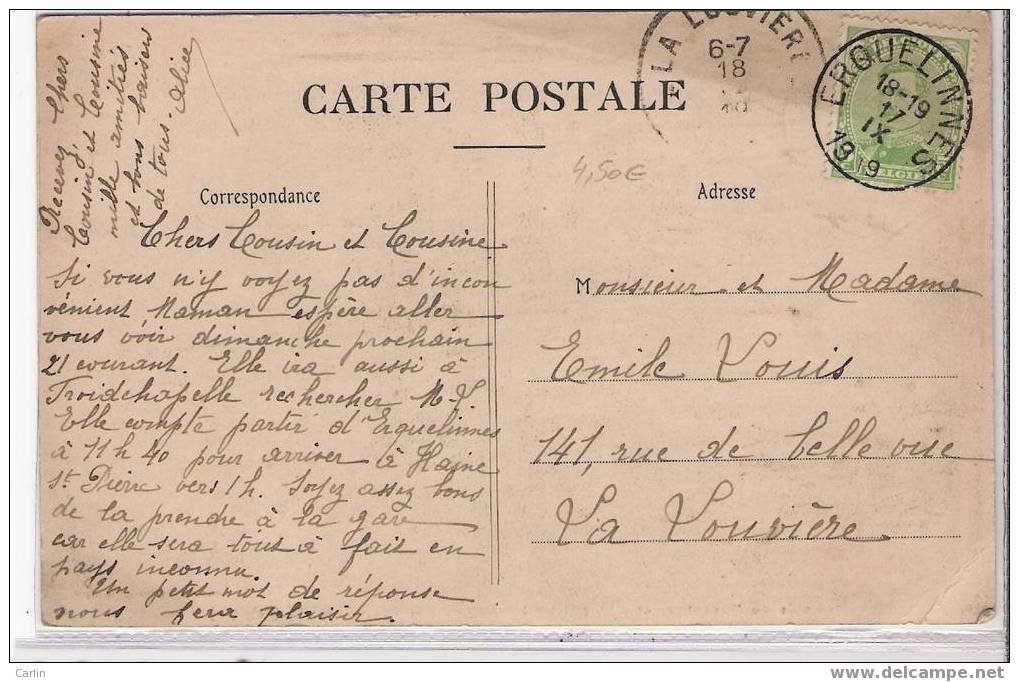 LA LOUVIÈRE
6-7
18
ERQUELINNES
18-19
17
IX
1919
CARTE POSTALE
4,50€
Correspondance
Adresse
Recevez Chers
Cousin et Cousine
mille amitiés
et bons baisers
de tous. Alice
Chers Cousin et Cousine
Si vous n'y voyez pas d'incon
vénient Maman espère aller
vous voir dimanche prochain
21 courant. Elle ira aussi à
Froidchapelle rechercher M. J
Elle compte partir d'Erquelinnes
à 11 h 40 pour arriver à Haine
St Pierre vers 1 h. Soyez assez bons
de la prendre à la gare
car elle sera tout à fait en
pays inconnu.
Un petit mot de réponse
nous fera plaisir.
Monsieur et Madame
Emile Louis
141, rue de belle vue
La Louvière
Carlin
www.delcampe.net